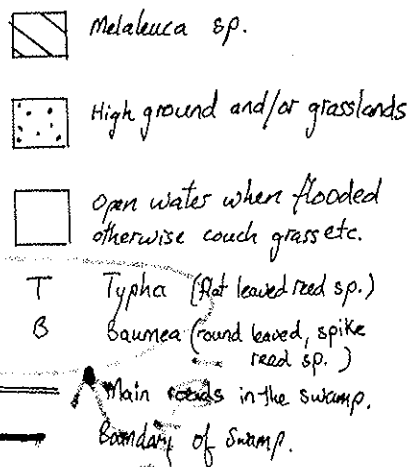 Melaleuca sp.
High ground and/or grasslands
Open water when flooded
otherwise couch grass etc.
T Typha (flat leaved reed sp.)
B Baumea (round leaved, spike
reed sp.)
Main roads in the swamp.
Boundary of Swamp.